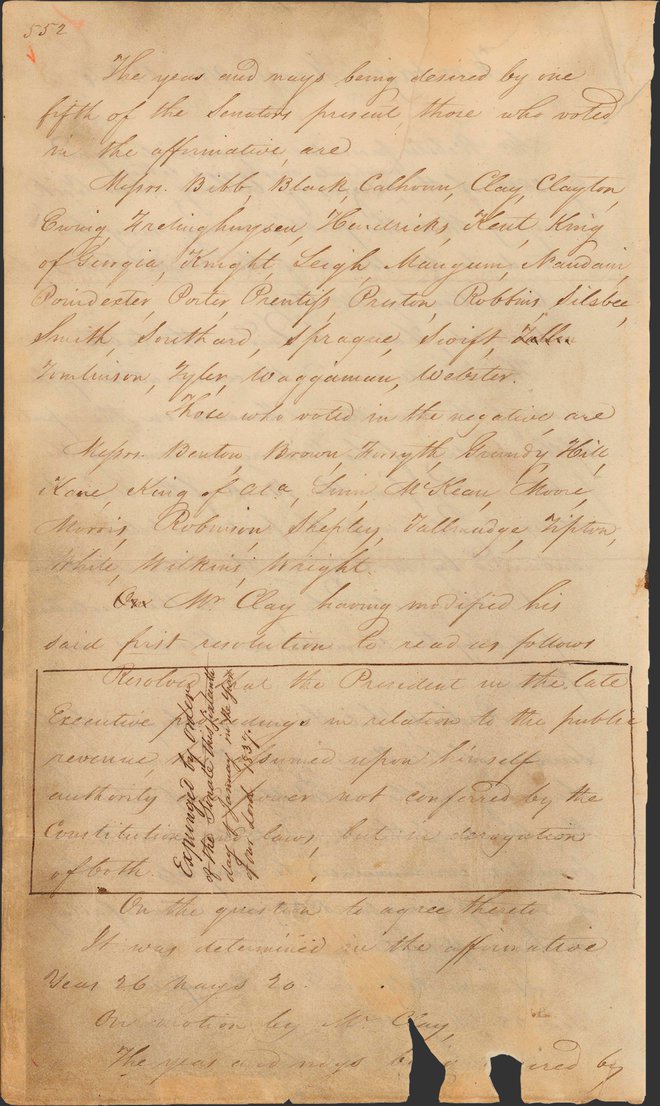 552
The yeas and nays being desired by one
fifth of the Senators present those who voted
in the affirmative, are
Messrs. Bibb, Black, Calhoun, Clay, Clayton,
Ewing, Frelinghuysen, Hendricks, Kent, King
of Georgia, Knight, Leigh, Mangum, Naudain,
Poindexter, Porter, Prentiss, Preston, Robbins, Silsbee,
Smith, Southard, Sprague, Swift,
Tomlinson, Tyler, Waggaman, Webster.
Those who voted in the negative, are
Messrs. Benton, Brown, Forsyth, Grundy, Hill,
Kane, King of Ala, Linn, McKean, Moore,
Morris, Robinson, Shepley, Tallmadge, Tipton,
White, Wilkins, Wright.
On Mr Clay having modified his
said first resolution to read as follows
Resolved that the President in the late
Executive proceedings in relation to the public
revenue, assumed upon himself
authority power not conferred by the
Constitution and laws, but in derogation
of both.
Expunged by order
of the Senate this sixteenth
day of January in the year
of our Lord 1837.
On the question to agree thereto
It was determined in the affirmative
Yeas 26 Nays 20.
On motion by Mr Clay,
The yeas and nays being desired by